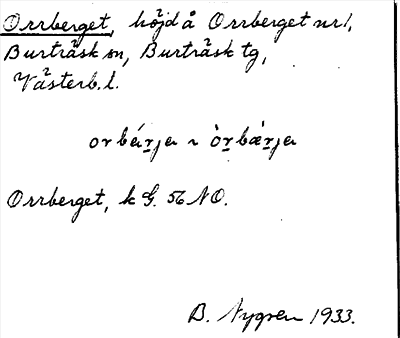 Orrberget, höjd å Orrberget nr 1,
Burträsk sn, Burträsk tg,
Västerb. l.
orbǽrja ~ òrbǽrja
Orrberget, k G. 56 NO.
B. Nygren 1933.